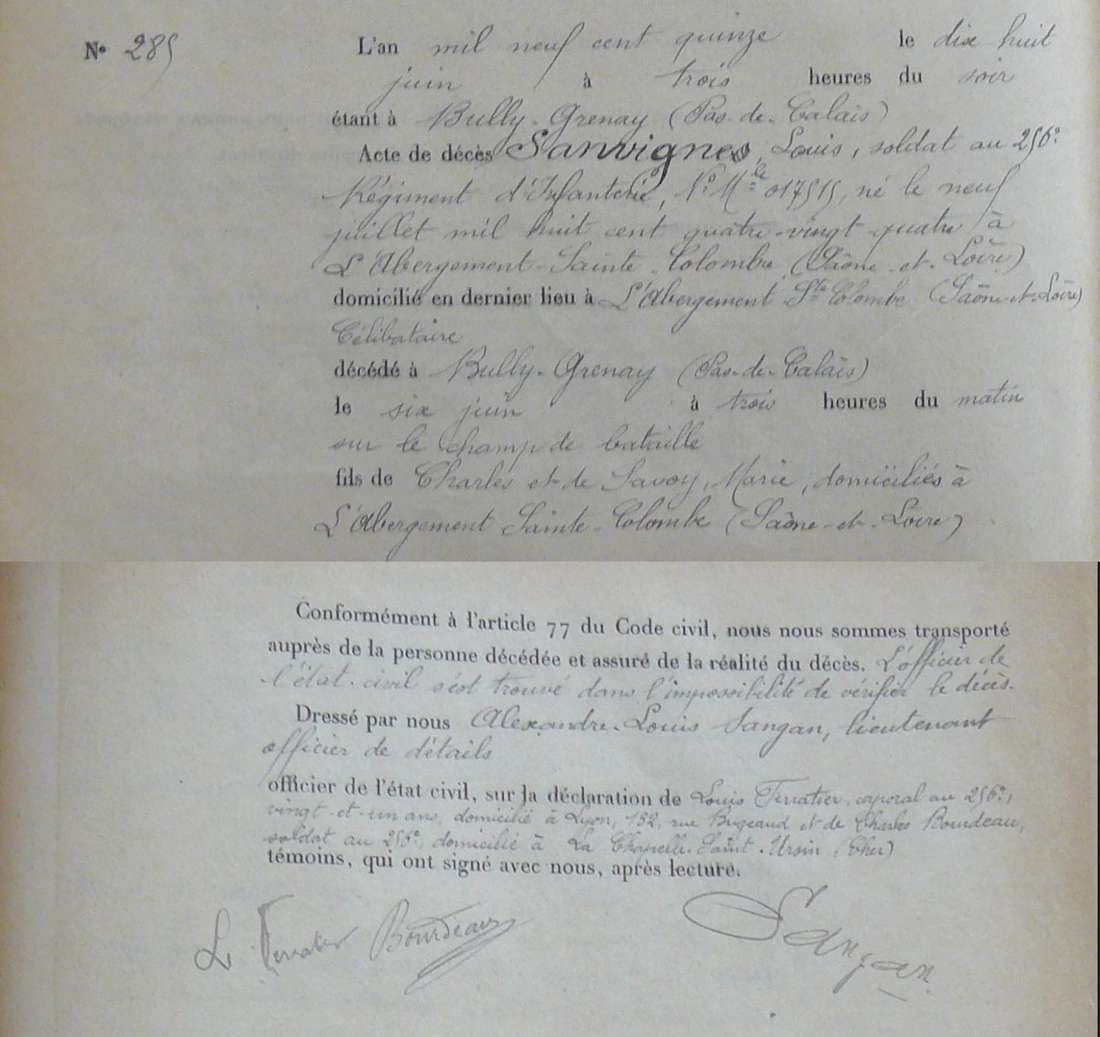 N° 285
L'an mil neuf cent quinze le dix huit
juin à trois heures du soir
étant à Bully-Grenay (Pas-de-Calais)
Acte de décès Sanvignes, Louis, soldat au 256e
Régiment d'Infanterie, N° Mle 017515, né le neuf
juillet mil huit cent quatre-vingt-quatre à
L'Abergement-Sainte-Colombe (Saône-et-Loire)
domicilié en dernier lieu à L'Abergement Ste Colombe (Saône-et-Loire)
Célibataire
décédé à Bully-Grenay (Pas-de-Calais)
le six juin à trois heures du matin
sur le champ de bataille
fils de Charles et de Savoy, Marie, domiciliés à
L'Abergement Sainte-Colombe (Saône-et-Loire)
Conformément à l'article 77 du Code civil, nous nous sommes transporté
auprès de la personne décédée et assuré de la réalité du décès. L'officier de
l'état-civil s'est trouvé dans l'impossibilité de vérifier le décès.
Dressé par nous Alexandre-Louis Sangan, lieutenant
officier de détails
officier de l'état civil, sur la déclaration de Louis Terratier, caporal au 256e,
vingt-et-un ans, domicilié à Lyon, 182, rue Bugeaud et de Charles Bourdeau,
soldat au 256e, domicilié à La Chapelle-Saint-Ursin (Cher)
témoins, qui ont signé avec nous, après lecture.
L. Terratier Bourdeau Sangan